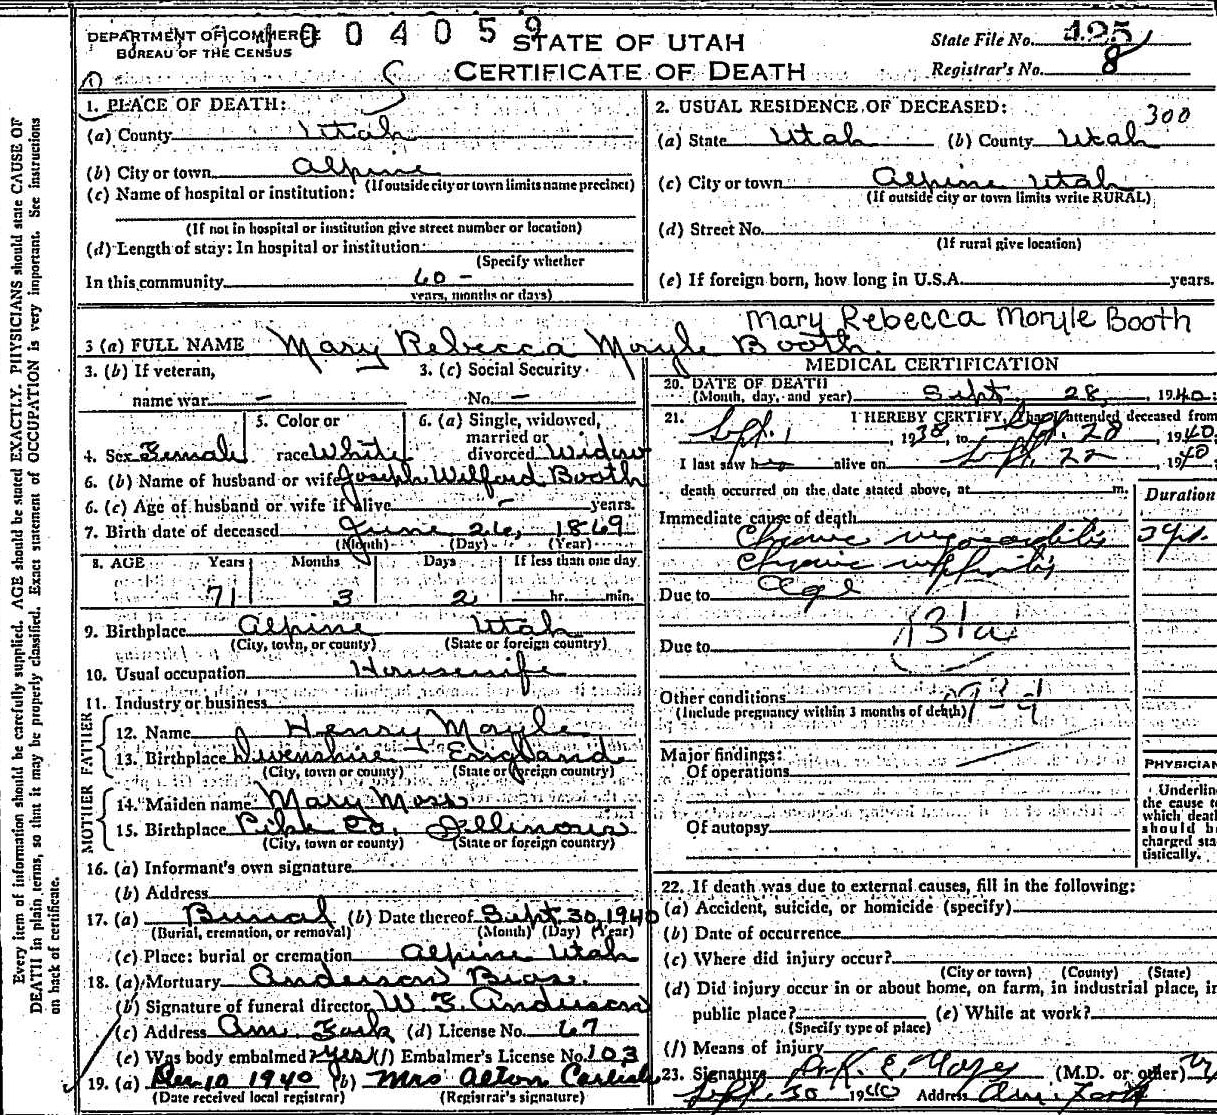 DEPARTMENT OF COMMERCE
BUREAU OF THE CENSUS
4004059
STATE OF UTAH
CERTIFICATE OF DEATH
State File No. 125
Registrar's No. 8
1. PLACE OF DEATH:
(a) County Utah
(b) City or town Alpine
(If outside city or town limits name precinct)
(c) Name of hospital or institution:
(If not in hospital or institution give street number or location)
(d) Length of stay: In hospital or institution:
(Specify whether
In this community 60 -
years, months or days)
2. USUAL RESIDENCE OF DECEASED:
300
(a) State Utah (b) County Utah
(c) City or town Alpine Utah
(If outside city or town limits write RURAL)
(d) Street No.
(If rural give location)
(e) If foreign born, how long in U.S.A. years.
Mary Rebecca Moryle Booth
3 (a) FULL NAME Mary Rebecca Moyle Booth
3. (b) If veteran,
name war —
3. (c) Social Security
No. —
4. Sex Female
5. Color or
race White
6. (a) Single, widowed,
married or
divorced Widow
6. (b) Name of husband or wife Joseph Wilford Booth
6. (c) Age of husband or wife if alive — years.
7. Birth date of deceased June 26, 1869
(Month) (Day) (Year)
8. AGE Years Months Days If less than one day
71 3 2 hr. min.
9. Birthplace Alpine Utah
(City, town, or county) (State or foreign country)
10. Usual occupation Housewife
11. Industry or business
FATHER
12. Name Henry Moyle
13. Birthplace Divenshire England
(City, town or county) (State or foreign country)
MOTHER
14. Maiden name Mary Moss
15. Birthplace Pike Co. Illinois
(City, town or county) (State or foreign country)
16. (a) Informant's own signature
(b) Address
17. (a) Burial (b) Date thereof Sept 30, 1940
(Burial, cremation, or removal) (Month) (Day) (Year)
(c) Place: burial or cremation Alpine Utah
18. (a) Mortuary Anderson Bros.
(b) Signature of funeral director W. F. Anderson
(c) Address Am. Fork (d) License No. 67
(e) Was body embalmed? yes (f) Embalmer's License No. 103
19. (a) Dec 10 1940 (b) Mrs Alton Carlisle
(Date received local registrar) (Registrar's signature)
MEDICAL CERTIFICATION
20. DATE OF DEATH
(Month, day, and year) Sept. 28, 1940
21. I HEREBY CERTIFY, That I attended deceased from
Sept. 1, 1938, to Sept. 28, 1940
I last saw her alive on Sept. 22, 1940
death occurred on the date stated above, at m.
Duration
Immediate cause of death
Chronic myocarditis 3 yrs.
Chronic nephritis
Due to age
131a
Due to
Other conditions 93-d
(Include pregnancy within 3 months of death)
Major findings:
Of operations
Of autopsy
PHYSICIAN
Underline
the cause to
which death
should be
charged sta
tistically.
22. If death was due to external causes, fill in the following:
(a) Accident, suicide, or homicide (specify)
(b) Date of occurrence
(c) Where did injury occur?
(City or town) (County) (State)
(d) Did injury occur in or about home, on farm, in industrial place, in
public place? (e) While at work?
(Specify type of place)
(f) Means of injury
23. Signature (M.D. or other)
Sept. 30 1940 Address Am. Fork
Every item of information should be carefully supplied. AGE should be stated EXACTLY. PHYSICIANS should state CAUSE OF
DEATH in plain terms, so that it may be properly classified. Exact statement of OCCUPATION is very important. See instructions
on back of certificate.